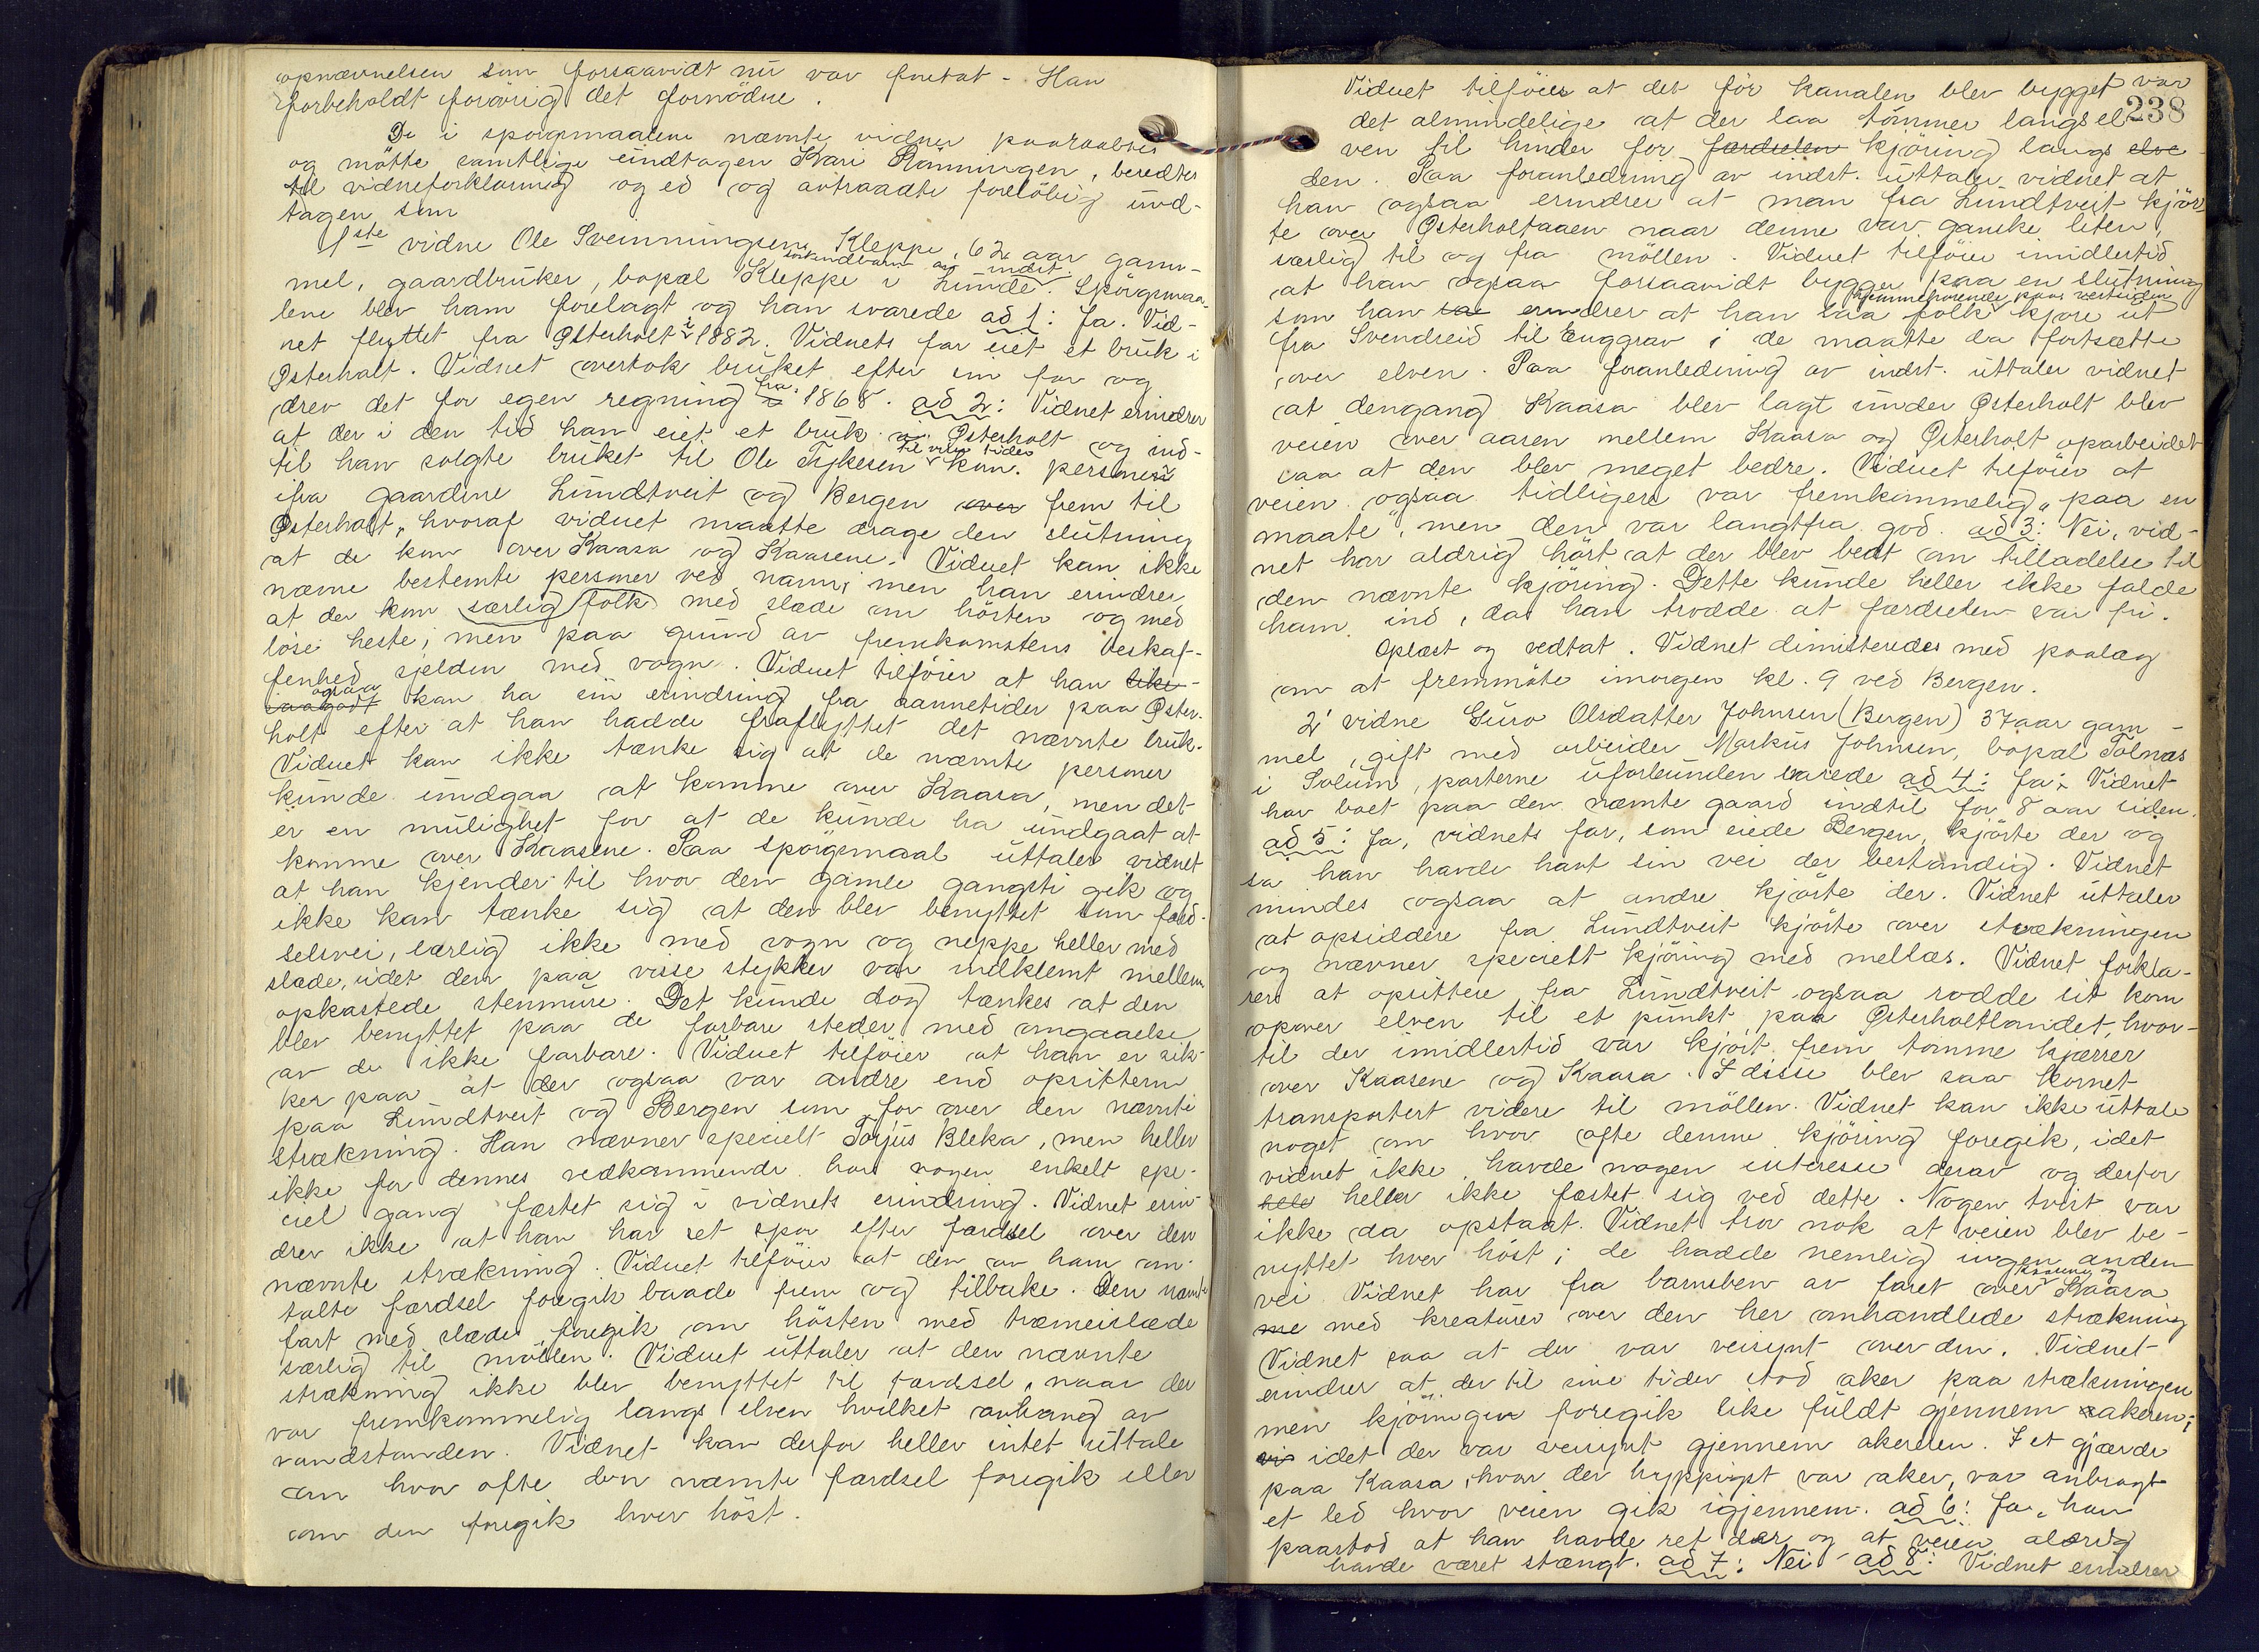 opnævnelsen som forsaavidt nu var foretat - Han
forbeholdt forøvrig det fornödne.
De i spörgsmaalene nævnte vidner paaraabtes
og mötte samtlige undtagen Kari Rönningen, beredtes
til vidneforklaring og ed og avtraadte foreløbig und-
tagen som
1ste vidne Ole Sveinningsen Kleppe, 62 aar gam-
söskendbarn av indst.
mel, gaardbruker, bopæl Kleppe i Lunde. Spörgsmaa-
lene blev ham forelagt og han svarede ad 1: Ja. Vid-
net flyttet fra Østerholt i 1882. Vidnets far eiet et bruk i
Østerholt. Vidnet overtok bruket efter sin far og
drev det for egen regning fra 1868. ad 2: Vidnet erindrer
at der i den tid han eiet et bruk i Østerholt og ind-
til han solgte bruket til Ole Tykesen til visse tider kom personer
ifra gaardene Lundtveit og Bergen over frem til
Østerholt, hvoraf vidnet maatte drage den slutning
at de kom over Kaasa og Kaasene. Vidnet kan ikke
nævne bestemte personer ved navn; men han erindrer
at der kom særlig folk med slæde om hösten og med
löse heste; men paa grund av fremkomstens beskaf-
fenhed sjelden med vogn. Vidnet tilföier at han like-
saagodt ogsaa kan ha en erindring fra aannetider paa Øster-
holt efter at han hadde fraflyttet det nævnte bruk.
Vidnet kan ikke tænke sig at de nævnte personer
kunde undgaa at komme over Kaasa, men det
er en mulighet for at de kunde ha undgaat at
komme over Kaasene. Paa spörgsmaal uttaler vidnet
at han kjender til hvor den gamle gangsti gik og
ikke kan tænke sig at den blev benyttet som færd-
selsvei, særlig ikke med vogn og neppe heller med
slæde, idet den paa visse stykker var indklemt mellem
opkastede stenmure. Det kunde dog tænkes at den
blev benyttet paa de farbare steder med omgaaelse
av de ikke farbare. Vidnet tilföier at han er sik-
ker paa at der ogsaa var andre end opsittern
paa Lundtveit og Bergen som for over den nævnte
strækning. Han nævner specielt Torjus Bleka, men heller
ikke for dennes vedkommende har nogen enkelt spe-
ciel gang fæstet sig i vidnets erindring. Vidnet erin-
drer ikke at han har set spor efter færdsel over den
nævnte strækning. Vidnet tilföier at den av ham om-
talte færdsel foregik baade frem og tilbake. Den nævnte
fart med slæde foregik om hösten med træmeislæde
særlig til möllen. Vidnet uttaler at den nævnte
strækning ikke blev benyttet til færdsel, naar der
var fremkommelig langs elven hvilket avhang av
vandstanden. Vidnet kan derfor heller intet uttale
om hvor ofte den nævnte færdsel foregik eller
om den foregik hver höst.
238
Vidnet tilföier at det för kanalen blev bygget var
det almindelige at der laa tömmer langs el-
ven til hinder for færdselen kjöring langs elve
den. Paa foranledning av indst. uttaler vidnet at
han ogsaa erindrer at man fra Lundtveit kjör-
te over Østerholtaaen naar denne var ganske liten,
særlig til og fra möllen. Vidnet tilföier imidlertid
at han ogsaa forsaavidt bygger paa en slutning
hjemmehörende paa vestsiden
som han saa erindrer at han saa folk kjøre ut
fra Svendseid til Enggrav; de maatte da fortsætte
over elven. Paa foranledning av indst. uttaler vidnet
at dengang Kaasa blev lagt under Østerholt blev
veien over aasen mellem Kaasa og Østerholt oparbeidet
saa at den blev meget bedre. Vidnet tilföier at
veien ogsaa tidligere var fremkommelig „paa en
maate", men den var langtfra god. ad 3: Nei, vid-
net har aldrig hört at der blev bedt om tilladelse til
den nævnte kjöring. Dette kunde heller ikke falde
ham ind, da han trodde at færdselen var fri.
Oplæst og vedtat. Vidnet dimitteredes med paalæg
om at fremmöte imorgen kl. 9 ved Bergen.
2' vidne Guro Olsdatter Johnsen (Bergen) 37 aar gam-
mel, gift med arbeider Markus Johnsen, bopæl Tolnæs
i Solum, parterne uforbunden svarede ad 4: Ja; Vidnet
har boet paa den nævnte gaard indtil for 8 aar siden.
ad 5: Ja, vidnets far, som eiede Bergen, kjörte der og
sa han havde havt sin vei der bestandig. Vidnet
mindes ogsaa at andre kjörte der. Vidnet uttaler
at opsiddere fra Lundtveit kjörte over strækningen
og nævner specielt kjöring med mellæs. Vidnet forkla-
rer at opsittere fra Lundtveit ogsaa rodde sit korn
opover elven til et punkt paa Østerholtlandet, hvor-
til der imidlertid var kjört frem tomme kjærrer
over Kaasene og Kaasa. I disse blev saa kornet
transportert videre til möllen. Vidnet kan ikke uttale
noget om hvor ofte denne kjöring foregik, idet
vidnet ikke havde nogen interesse derav og derfor
helle heller ikke fæstet sig ved dette. Nogen tvist var
ikke da opstaat. Vidnet tror nok at veien blev be-
nyttet hver höst; de hadde nemlig ingen anden
vei. Vidnet har fra barnsben av faret over Kaasene og Kaasa
me med kreaturer over den her omhandlede strækning
Vidnet saa at der var veisynt over den. Vidnet
erindrer at der til sine tider stod aker paa strækningen
men kjöringen foregik like fuldt gjennem akeren;
idet der var veisynt gjennem akeren. I et gjærde
paa Kaasa, hvor der hyppigst var aker, var anbragt
et led hvor veien gik igjennem. ad 6: Ja, han
paastod at han havde ret der og at veien aldrig
havde været stængt. ad 7: Nei - ad 8: Vidnet erindrer